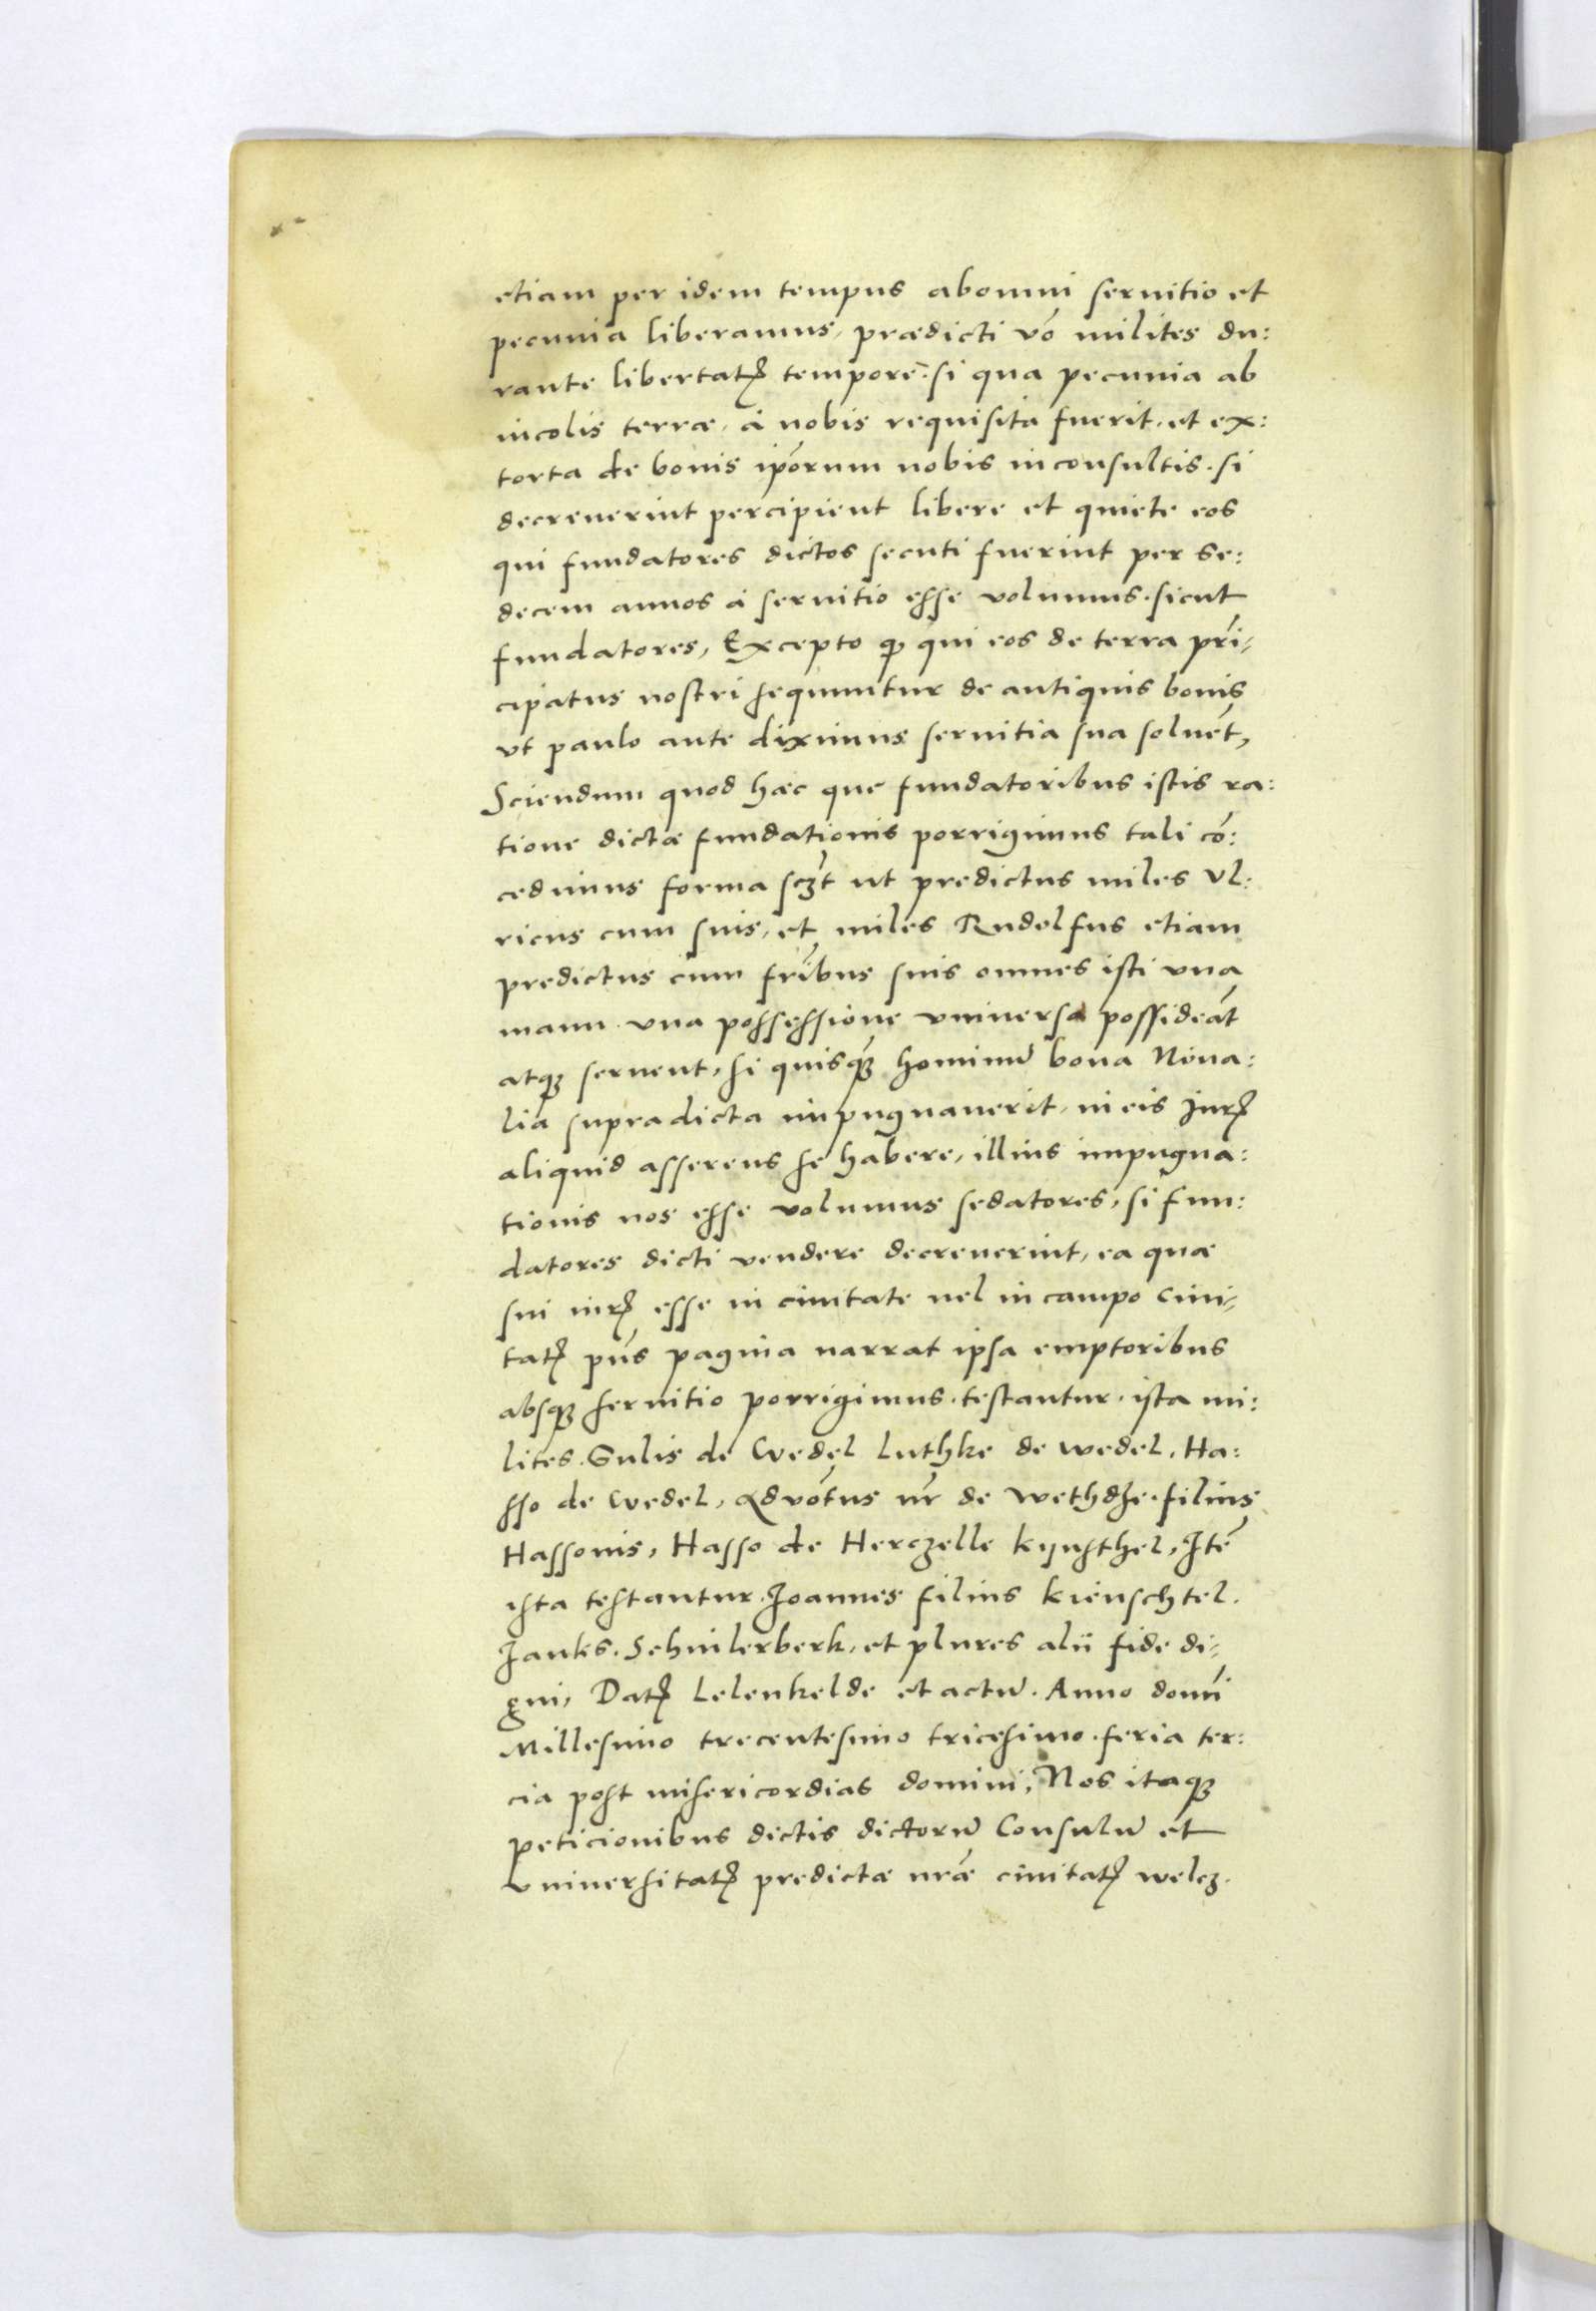 etiam per idem tempus abomni seruitio et
pecunia liberamus, prædicti vo᷃ milites du:
rante libertatꝭ tempore. si qua pecunia ab
incolis terræ, à nobis requisita fuerit, et ex:
torta de bonis ip̃orum nobis inconsultis. si
decreuerint percipient libere et quiete eos
qui fundatores dictos secuti fuerint per se:
decem annos à seruitio esse volumus. sicut
fundatores, Excepto ꝙ qui eos de terra prĩ,
cipatus nostri sequuntur de antiquis bonis
vt paulo ante diximus seruitia sua soluẽt,
Sciendum quod hæc que fundatoribus istis ra:
tione dictæ fundationis porrigimus tali cõ:
cedimus forma scꝫt ut predictus miles Vl:
ricus cum suis, et miles Rudolfus etiam
predictus cum fr̃ibus suis omnes isti vna
manu. vna possessione vniuersa possideãt
atqꝫ seruent, si quisqꝫ hominũ bona Noua:
lia supradicta impugnauerit, in eis Jurꝭ
aliquid asserens se habere, illius impugna:
tionis nos esse volumus sedatores, si fun:
datores dicti vendere decreuerint, ea quæ
sui iurꝭ esse in ciuitate uel in campo Ciui,
tatꝭ pñs pagina narrat ipsa emptoribus
absqꝫ seruitio porrigimus. testantur. ista mi:
lites. Gulis de Wedel Luthke de wedel, Ha:
sso de Wedel, Aduõtus nr̃ de wethdse. filius
Hassonis, Hasso de Herczelle kÿnsthel, Itẽ
ista testantur. Joannes filius kienschtel.
Janks. Schnilerberk, et plures alii fide di,
gni, Datꝭ Lelenkelde et actũ. Anno domi᷃
Millesimo trecentesimo tricesimo. feria ter:
cia post misericordias domini, Nos itaqꝫ
peticionibus dictis dictorũ Consulũ et
vniuersitatꝭ predictæ nr̃æ ciuitatꝭ welcz.